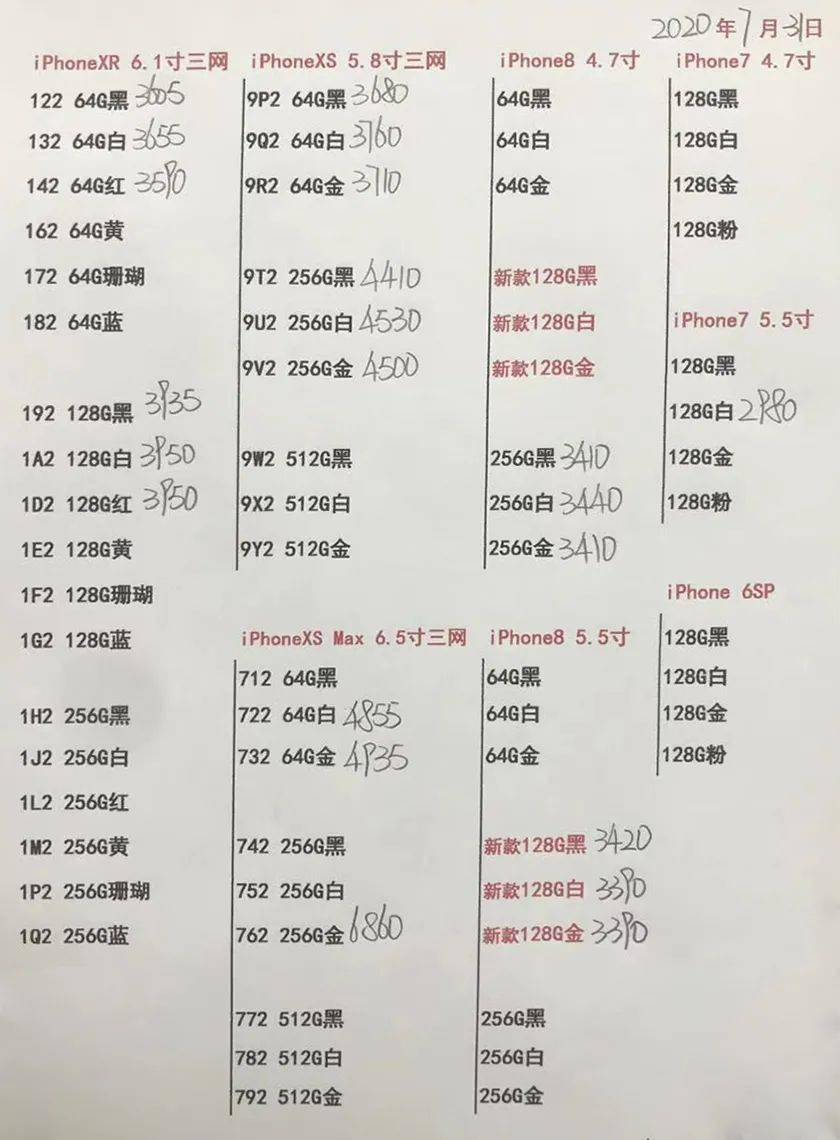 2020年7月31日
iPhoneXR 6.1寸三网
122 64G黑 3605
132 64G白 3655
142 64G红 3590
162 64G黄
172 64G珊瑚
182 64G蓝
192 128G黑 3935
1A2 128G白 3950
1D2 128G红 3950
1E2 128G黄
1F2 128G珊瑚
1G2 128G蓝
1H2 256G黑
1J2 256G白
1L2 256G红
1M2 256G黄
1P2 256G珊瑚
1Q2 256G蓝
iPhoneXS 5.8寸三网
9P2 64G黑 3680
9Q2 64G白 3760
9R2 64G金 3710
9T2 256G黑 4410
9U2 256G白 4530
9V2 256G金 4500
9W2 512G黑
9X2 512G白
9Y2 512G金
iPhoneXS Max 6.5寸三网
712 64G黑
722 64G白 4855
732 64G金 4935
742 256G黑
752 256G白
762 256G金 6860
772 512G黑
782 512G白
792 512G金
iPhone8 4.7寸
64G黑
64G白
64G金
新款128G黑
新款128G白
新款128G金
256G黑 3410
256G白 3440
256G金 3410
iPhone8 5.5寸
64G黑
64G白
64G金
新款128G黑 3420
新款128G白 3390
新款128G金 3390
256G黑
256G白
256G金
iPhone7 4.7寸
128G黑
128G白
128G金
128G粉
iPhone7 5.5寸
128G黑
128G白 2980
128G金
128G粉
iPhone 6SP
128G黑
128G白
128G金
128G粉